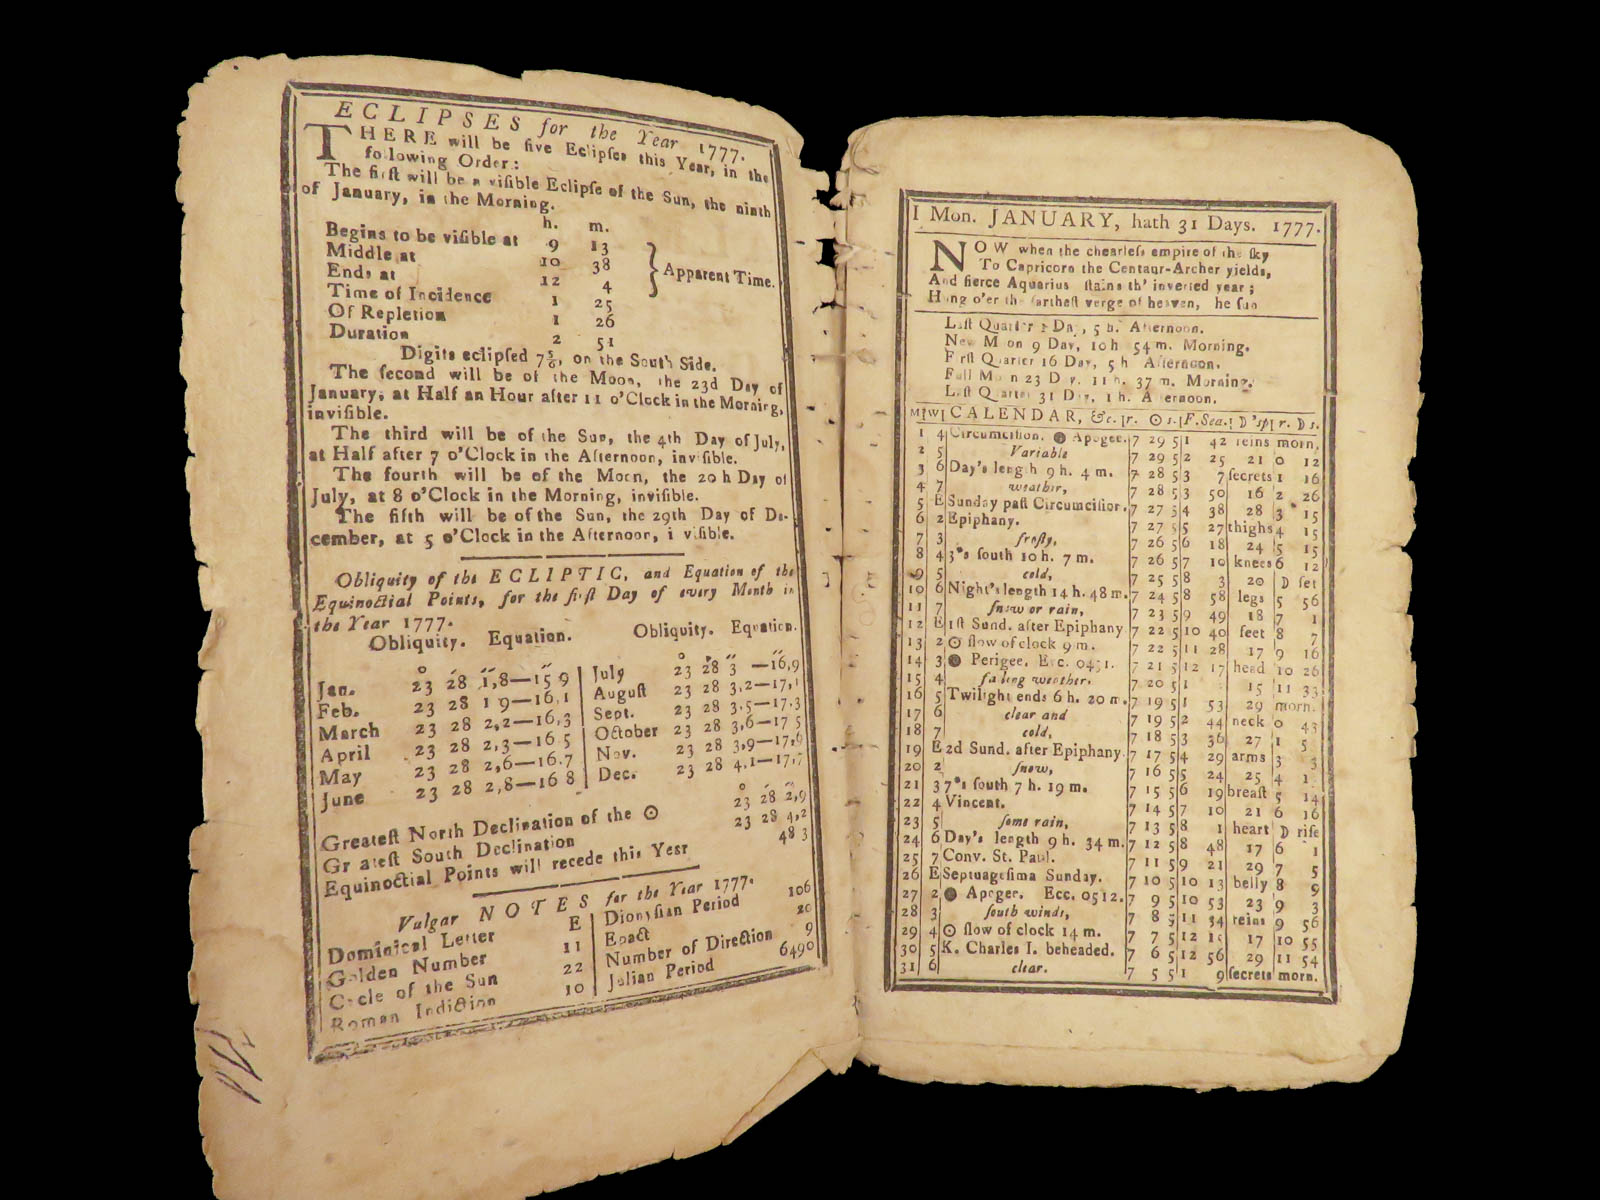 ECLIPSES for the Year 1777.
THERE will be five Eclipſes this Year, in the
following Order:
The firſt will be a viſible Eclipſe of the Sun, the ninth
of January, in the Morning.
h. m.
Begins to be viſible at 9 13
Middle at 10 38
Ends at 12 4
} Apparent Time.
Time of Incidence 1 25
Of Repletion 1 26
Duration 2 51
Digits eclipſed 7⅚, on the South Side.
The ſecond will be of the Moon, the 23d Day of
January, at Half an Hour after 11 o'Clock in the Morning,
inviſible.
The third will be of the Sun, the 4th Day of July,
at Half after 7 o'Clock in the Afternoon, inviſible.
The fourth will be of the Moon, the 20th Day of
July, at 8 o'Clock in the Morning, inviſible.
The fifth will be of the Sun, the 29th Day of De-
cember, at 5 o'Clock in the Afternoon, inviſible.
Obliquity of the ECLIPTIC, and Equation of the
Equinoctial Points, for the firſt Day of every Month in
the Year 1777.
Obliquity. Equation. Obliquity. Equation.
Jan. 23 28 1,8—15 9 July 23 28 3 —16,9
Feb. 23 28 1 9—16,1 Auguſt 23 28 3,2—17,1
March 23 28 2,2—16,3 Sept. 23 28 3,5—17,3
April 23 28 2,3—16 5 October 23 28 3,6—17 5
May 23 28 2,6—16,7 Nov. 23 28 3,9—17,6
June 23 28 2,8—16 8 Dec. 23 28 4,1—17,7
Greateſt North Declination of the ☉ 23 28 2,9
Greateſt South Declination 23 28 4,2
Equinoctial Points will recede this Year 48 3
Vulgar NOTES for the Year 1777.
Dominical Letter E Dionyſian Period 106
Golden Number 11 Epact 20
Cycle of the Sun 22 Number of Direction 9
Roman Indiction 10 Julian Period 6490
I Mon. JANUARY, hath 31 Days. 1777.
NOW when the chearleſs empire of the ſky
To Capricorn the Centaur-Archer yields,
And fierce Aquarius ſtains th' inverted year;
Hung o'er the fartheſt verge of heaven, he ſun
Laſt Quarter 1 Day, 5 h. Afternoon.
New Moon 9 Day, 10 h 54 m. Morning.
Firſt Quarter 16 Day, 5 h Afternoon.
Full Moon 23 Day, 11 h. 37 m. Morning.
Laſt Quarter 31 Day, 1 h. Afternoon.
M|W| CALENDAR, &c. |r. ☉ s.|F. Sea.| ☽'s p|r. ☽ s.
1 4 Circumciſion. ● Apogee. 7 29 5 1 42 reins morn.
2 5 Variable 7 29 5 2 25 21 0 12
3 6 Day's length 9 h. 4 m. 7 28 5 3 7 ſecrets 1 16
4 7 weather, 7 28 5 3 50 16 2 26
5 E Sunday paſt Circumciſion. 7 27 5 4 38 28 3 15
6 2 Epiphany. 7 27 5 5 27 thighs 4 15
7 3 froſty, 7 26 5 6 18 24 5 15
8 4 7*s ſouth 10 h. 7 m. 7 26 5 7 10 knees 6 12
9 5 cold, 7 25 5 8 3 20 ☽ ſet
10 6 Night's length 14 h. 48 m. 7 24 5 8 58 legs 5 56
11 7 ſnow or rain, 7 23 5 9 49 18 7 1
12 E 1ſt Sund. after Epiphany 7 22 5 10 40 feet 8 7
13 2 ☉ ſlow of clock 9 m. 7 22 5 11 28 17 9 16
14 3 ● Perigee. Ecc. 0431. 7 21 5 12 17 head 10 26
15 4 falling weather. 7 20 5 1 15 11 33
16 5 Twilight ends 6 h. 20 m. 7 19 5 1 53 29 morn.
17 6 clear and 7 19 5 2 44 neck 0 43
18 7 cold, 7 18 5 3 36 27 1 5
19 E 2d Sund. after Epiphany. 7 17 5 4 29 arms 3 3
20 2 ſnow, 7 16 5 5 24 25 4 1
21 3 7*s ſouth 7 h. 19 m. 7 15 5 6 19 breaſt 5 14
22 4 Vincent. 7 14 5 7 10 21 6 16
23 5 ſome rain, 7 13 5 8 1 heart ☽ riſe
24 6 Day's length 9 h. 34 m. 7 12 5 8 48 17 6 1
25 7 Conv. St. Paul. 7 11 5 9 21 29 7 5
26 E Septuageſima Sunday. 7 10 5 10 13 belly 8 9
27 2 ● Apogee. Ecc. 0512. 7 9 5 10 53 23 9 3
28 3 ſouth winds, 7 8 5 11 34 reins 9 56
29 4 ☉ ſlow of clock 14 m. 7 7 5 12 15 17 10 55
30 5 K. Charles I. beheaded. 7 6 5 12 56 29 11 54
31 6 clear. 7 5 5 1 9 ſecrets morn.